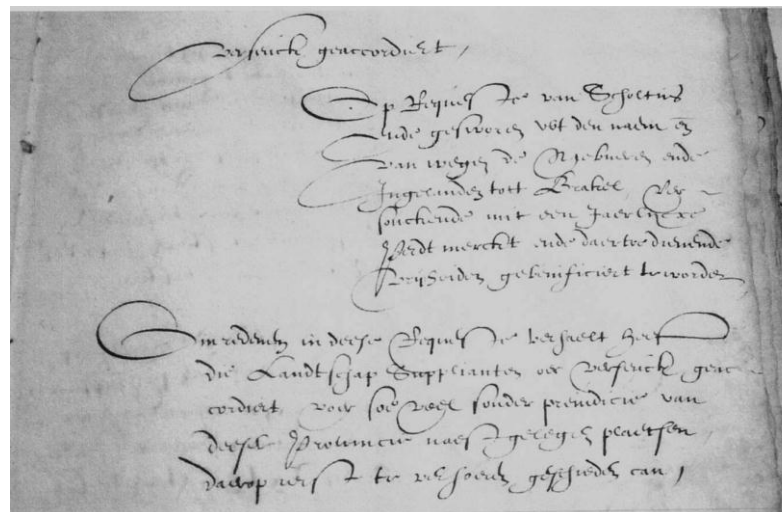 Verseuck geaccordiert,
Op Requeste van Scholtus
ende gesworen uut den naem en̄
van wegen de Nabueren ende
Ingelanden tott Brakel, Ver-
suickende mit een Jaerlycxe
Perdt merckt ende daertoe dienende
Vrijheiden gebenificiert te worden
Om redenen in deese Requeste verhaelt heeft
die Landtschap Supplianten oer Verseuck geac-
cordiert voir soe veel sonder preiudicie van
deeser Provincie naest gelegen plaetsen,
daerop ierst te verhoeren geschieden can,